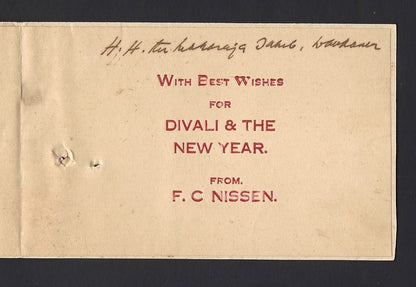 H. H. the Maharaja Saheb, Wankaner
WITH BEST WISHES
FOR
DIVALI & THE
NEW YEAR.
FROM.
F. C NISSEN.